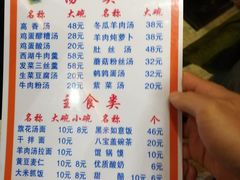 汤 类
名称 大碗 名称 大碗
高香汤 48元 冬瓜羊肉汤 38元
鸡蛋醪糟汤 28元 羊肉炖萝卜 38元
鸡蛋酸汤 28元 肚丝汤 38元
西湖牛肉羹 58元 蘑菇粉丝汤 32元
发菜三丝羹 58元 鹌鹑蛋汤 32元
生菜豆腐汤 20元 紫菜汤 20元
牛肉粉汤 20元
主食类
名称 大碗 小碗 名称 个
旗花汤面 10元 8元 黑米如意饭 46元
干拌面 10元 八宝盖碗茶 20元
羊肉汤拉面 10元 8元 馄锅馍 10元
黄豆麦仁 10元 6元 优质酸奶 6元
大米抓饭 10元 6元 甜醅 10元